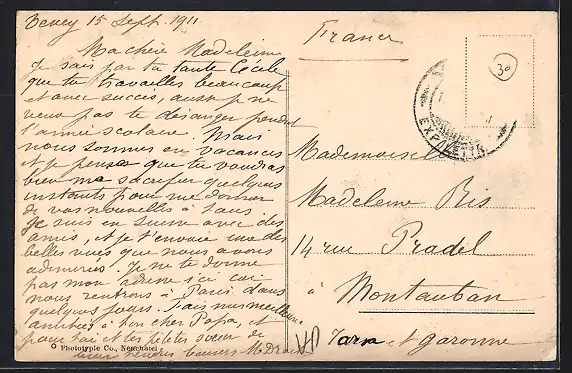 Vevey 15 Sept. 1911
Ma chère Madeleine
Je sais par ta tante Cécile
que tu travailles beaucoup
et avec succès, aussi je ne
veux pas te déranger pendant
l'année scolaire. Mais
nous sommes en vacances
et je pense que tu voudras
bien me sacrifier quelques
instants pour me donner
de vos nouvelles à tous.
Je suis en Suisse avec des
amis, et je t'envoie une des
belles vues que nous avons
admirées. Je ne te donne
pas mon adresse ici car
nous rentrons à Paris dans
quelques jours. Fais mes meilleures
amitiés à ton cher Papa, et
pour toi et tes petites sœurs de
bien tendres baisers M.
© Phototypie Co., Neuchâtel
France
30
EXP. LETTR.
Mademoiselle
Madeleine Ris
14 rue Pradel
à Montauban
Tarn et Garonne